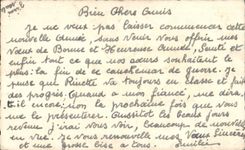 Bien Chers Amis
Je ne veux pas laisser commencer cette
nouvelle Année sans venir vous offrir mes
vœux de Bonne et Heureuse Année, Santé et
enfin tout ce que nos cœurs souhaitent le
plus: la fin de ce cauchemar de guerre. Je
pense que Ninette va toujours en classe et fait
des progrès. Quand à mon fiancé, me dira
t'il encore non la prochaine fois que vous
me le présenterez. Aussitôt les beaux jours
revenu j'irai vous voir, beaucoup de nouvelles
en vue. Je vous renouvelle mes Vœux sincères
et une grosse bise à tous. Emilie